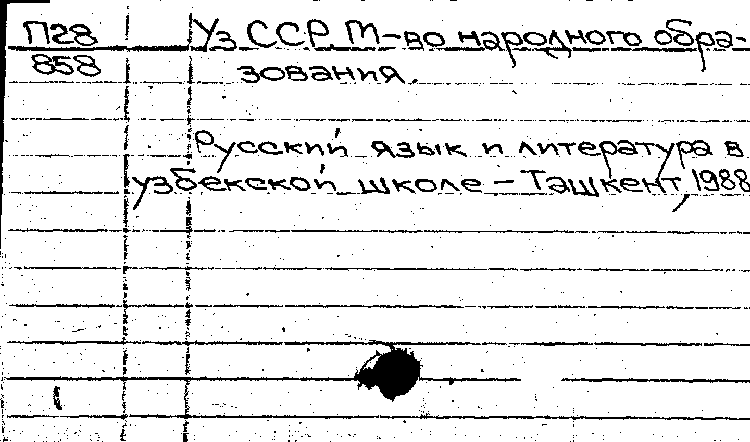 П28 Уз ССР. М-во народного обра-
858 зования.
Русский язык и литература в
узбекской школе - Ташкент, 1988